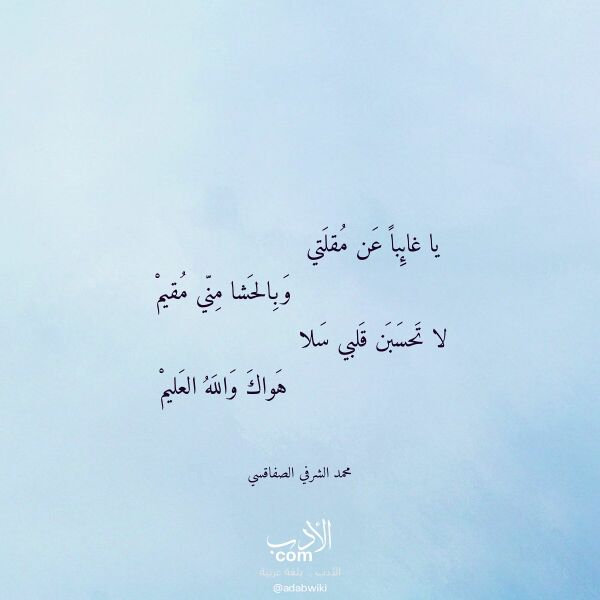 يا غائِباً عَن مُقلَتي
وَبِالحَشا مِنّي مُقيمْ
لا تَحسَبَن قَلبي سَلا
هَواكَ وَاللَهُ العَليمْ
محمد الشرفي الصفاقسي
الأدب
com
الأدب .. بلغة عربية
@adabwiki